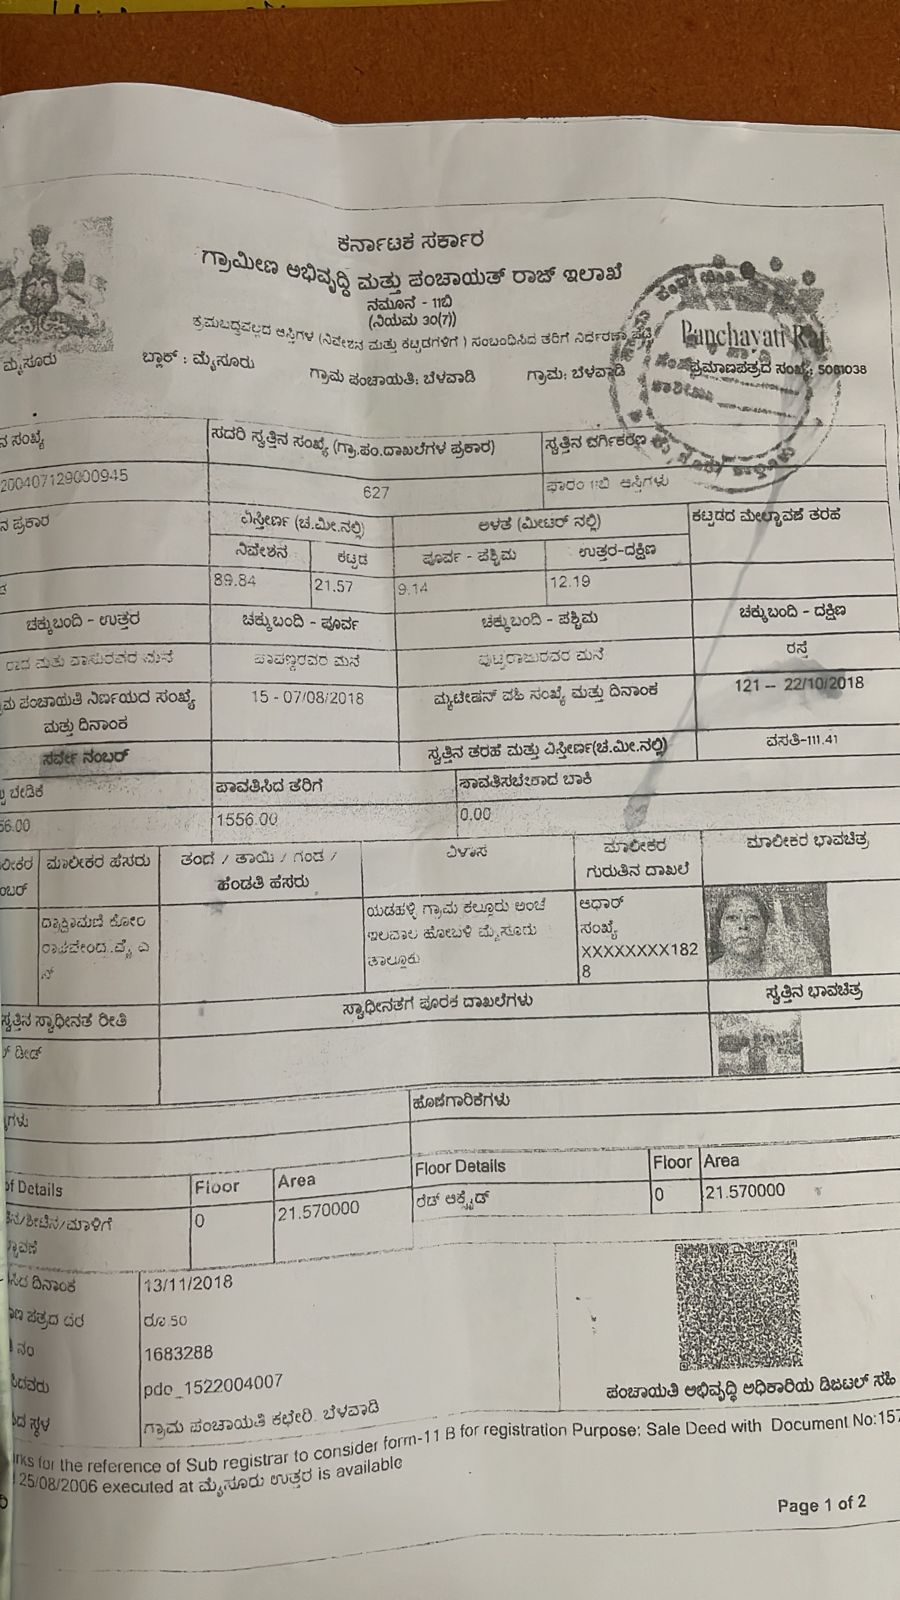 ಕರ್ನಾಟಕ ಸರ್ಕಾರ
ಗ್ರಾಮೀಣ ಅಭಿವೃದ್ಧಿ ಮತ್ತು ಪಂಚಾಯತ್ ರಾಜ್ ಇಲಾಖೆ
ನಮೂನೆ - 11ಬಿ
(ನಿಯಮ 30(7))
ಕ್ರಮಬದ್ದವಲ್ಲದ ಆಸ್ತಿಗಳ (ನಿವೇಶನ ಮತ್ತು ಕಟ್ಟಡಗಳಿಗೆ ) ಸಂಬಂಧಿಸಿದ ತೆರಿಗೆ ನಿರ್ಧರಣಾ ಪಟ್ಟಿ
Panchayati Raj
ಮೈಸೂರು ಬ್ಲಾಕ್ : ಮೈಸೂರು ಗ್ರಾಮ ಪಂಚಾಯತಿ: ಬೆಳವಾಡಿ ಗ್ರಾಮ: ಬೆಳವಾಡಿ ಪ್ರಮಾಣಪತ್ರದ ಸಂಖ್ಯೆ: 5061038
ಸಂಖ್ಯೆ ಸದರಿ ಸ್ವತ್ತಿನ ಸಂಖ್ಯೆ (ಗ್ರಾ.ಪಂ.ದಾಖಲೆಗಳ ಪ್ರಕಾರ) ಸ್ವತ್ತಿನ ವರ್ಗೀಕರಣ
200407129000945 627 ಫಾರಂ 11ಬಿ ಆಸ್ತಿಗಳು
ಪ್ರಕಾರ ವಿಸ್ತೀರ್ಣ (ಚ.ಮೀ.ನಲ್ಲಿ) ಅಳತೆ (ಮೀಟರ್ ನಲ್ಲಿ) ಕಟ್ಟಡದ ಮೇಲ್ಛಾವಣಿ ತರಹೆ
ನಿವೇಶನ ಕಟ್ಟಡ ಪೂರ್ವ - ಪಶ್ಚಿಮ ಉತ್ತರ-ದಕ್ಷಿಣ
89.84 21.57 9.14 12.19
ಚಕ್ಕುಬಂದಿ - ಉತ್ತರ ಚಕ್ಕುಬಂದಿ - ಪೂರ್ವ ಚಕ್ಕುಬಂದಿ - ಪಶ್ಚಿಮ ಚಕ್ಕುಬಂದಿ - ದಕ್ಷಿಣ
ಮತ್ತು ವಾಸುರವರ ಮನೆ ಪಾಪಣ್ಣರವರ ಮನೆ ಪುಟ್ಟರಾಜುರವರ ಮನೆ ರಸ್ತೆ
ಪಂಚಾಯತಿ ನಿರ್ಣಯದ ಸಂಖ್ಯೆ ಮತ್ತು ದಿನಾಂಕ 15 - 07/08/2018 ಮ್ಯುಟೇಷನ್ ವಹಿ ಸಂಖ್ಯೆ ಮತ್ತು ದಿನಾಂಕ 121 -- 22/10/2018
ಸರ್ವೇ ನಂಬರ್ ಸ್ವತ್ತಿನ ತರಹೆ ಮತ್ತು ವಿಸ್ತೀರ್ಣ(ಚ.ಮೀ.ನಲ್ಲಿ) ವಸತಿ-111.41
ಬೇಡಿಕೆ ಪಾವತಿಸಿದ ತೆರಿಗೆ ಪಾವತಿಸಬೇಕಾದ ಬಾಕಿ
56.00 1556.00 0.00
ಮಾಲೀಕರ ಹೆಸರು ತಂದೆ / ತಾಯಿ / ಗಂಡ / ಹೆಂಡತಿ ಹೆಸರು ವಿಳಾಸ ಮಾಲೀಕರ ಗುರುತಿನ ದಾಖಲೆ ಮಾಲೀಕರ ಭಾವಚಿತ್ರ
ಯಡಹಳ್ಳಿ ಗ್ರಾಮ ಕಲ್ಲೂರು ಅಂಚೆ
ಇಲವಾಲ ಹೋಬಳಿ ಮೈಸೂರು
ತಾಲ್ಲೂಕು
ಆಧಾರ್
ಸಂಖ್ಯೆ
XXXXXXXX182
8
ಸ್ವತ್ತಿನ ಸ್ವಾಧೀನತೆ ರೀತಿ ಸ್ವಾಧೀನತೆಗೆ ಪೂರಕ ದಾಖಲೆಗಳು ಸ್ವತ್ತಿನ ಭಾವಚಿತ್ರ
ಡೀಡ್
ಹೊಣೆಗಾರಿಕೆಗಳು
Details Floor Area Floor Details Floor Area
0 21.570000 ರೆಡ್ ಆಕ್ಸೈಡ್ 0 21.570000
ದಿನಾಂಕ 13/11/2018
ಪತ್ರದ ದರ ರೂ.50
ನಂ 1683288
pdo_1522004007
ಸ್ಥಳ ಗ್ರಾಮ ಪಂಚಾಯತಿ ಕಛೇರಿ, ಬೆಳವಾಡಿ
ಪಂಚಾಯತಿ ಅಭಿವೃದ್ಧಿ ಅಧಿಕಾರಿಯ ಡಿಜಿಟಲ್ ಸಹಿ
for the reference of Sub registrar to consider form-11 B for registration Purpose: Sale Deed with Document No:157
25/08/2006 executed at ಮೈಸೂರು ಉತ್ತರ is available
Page 1 of 2